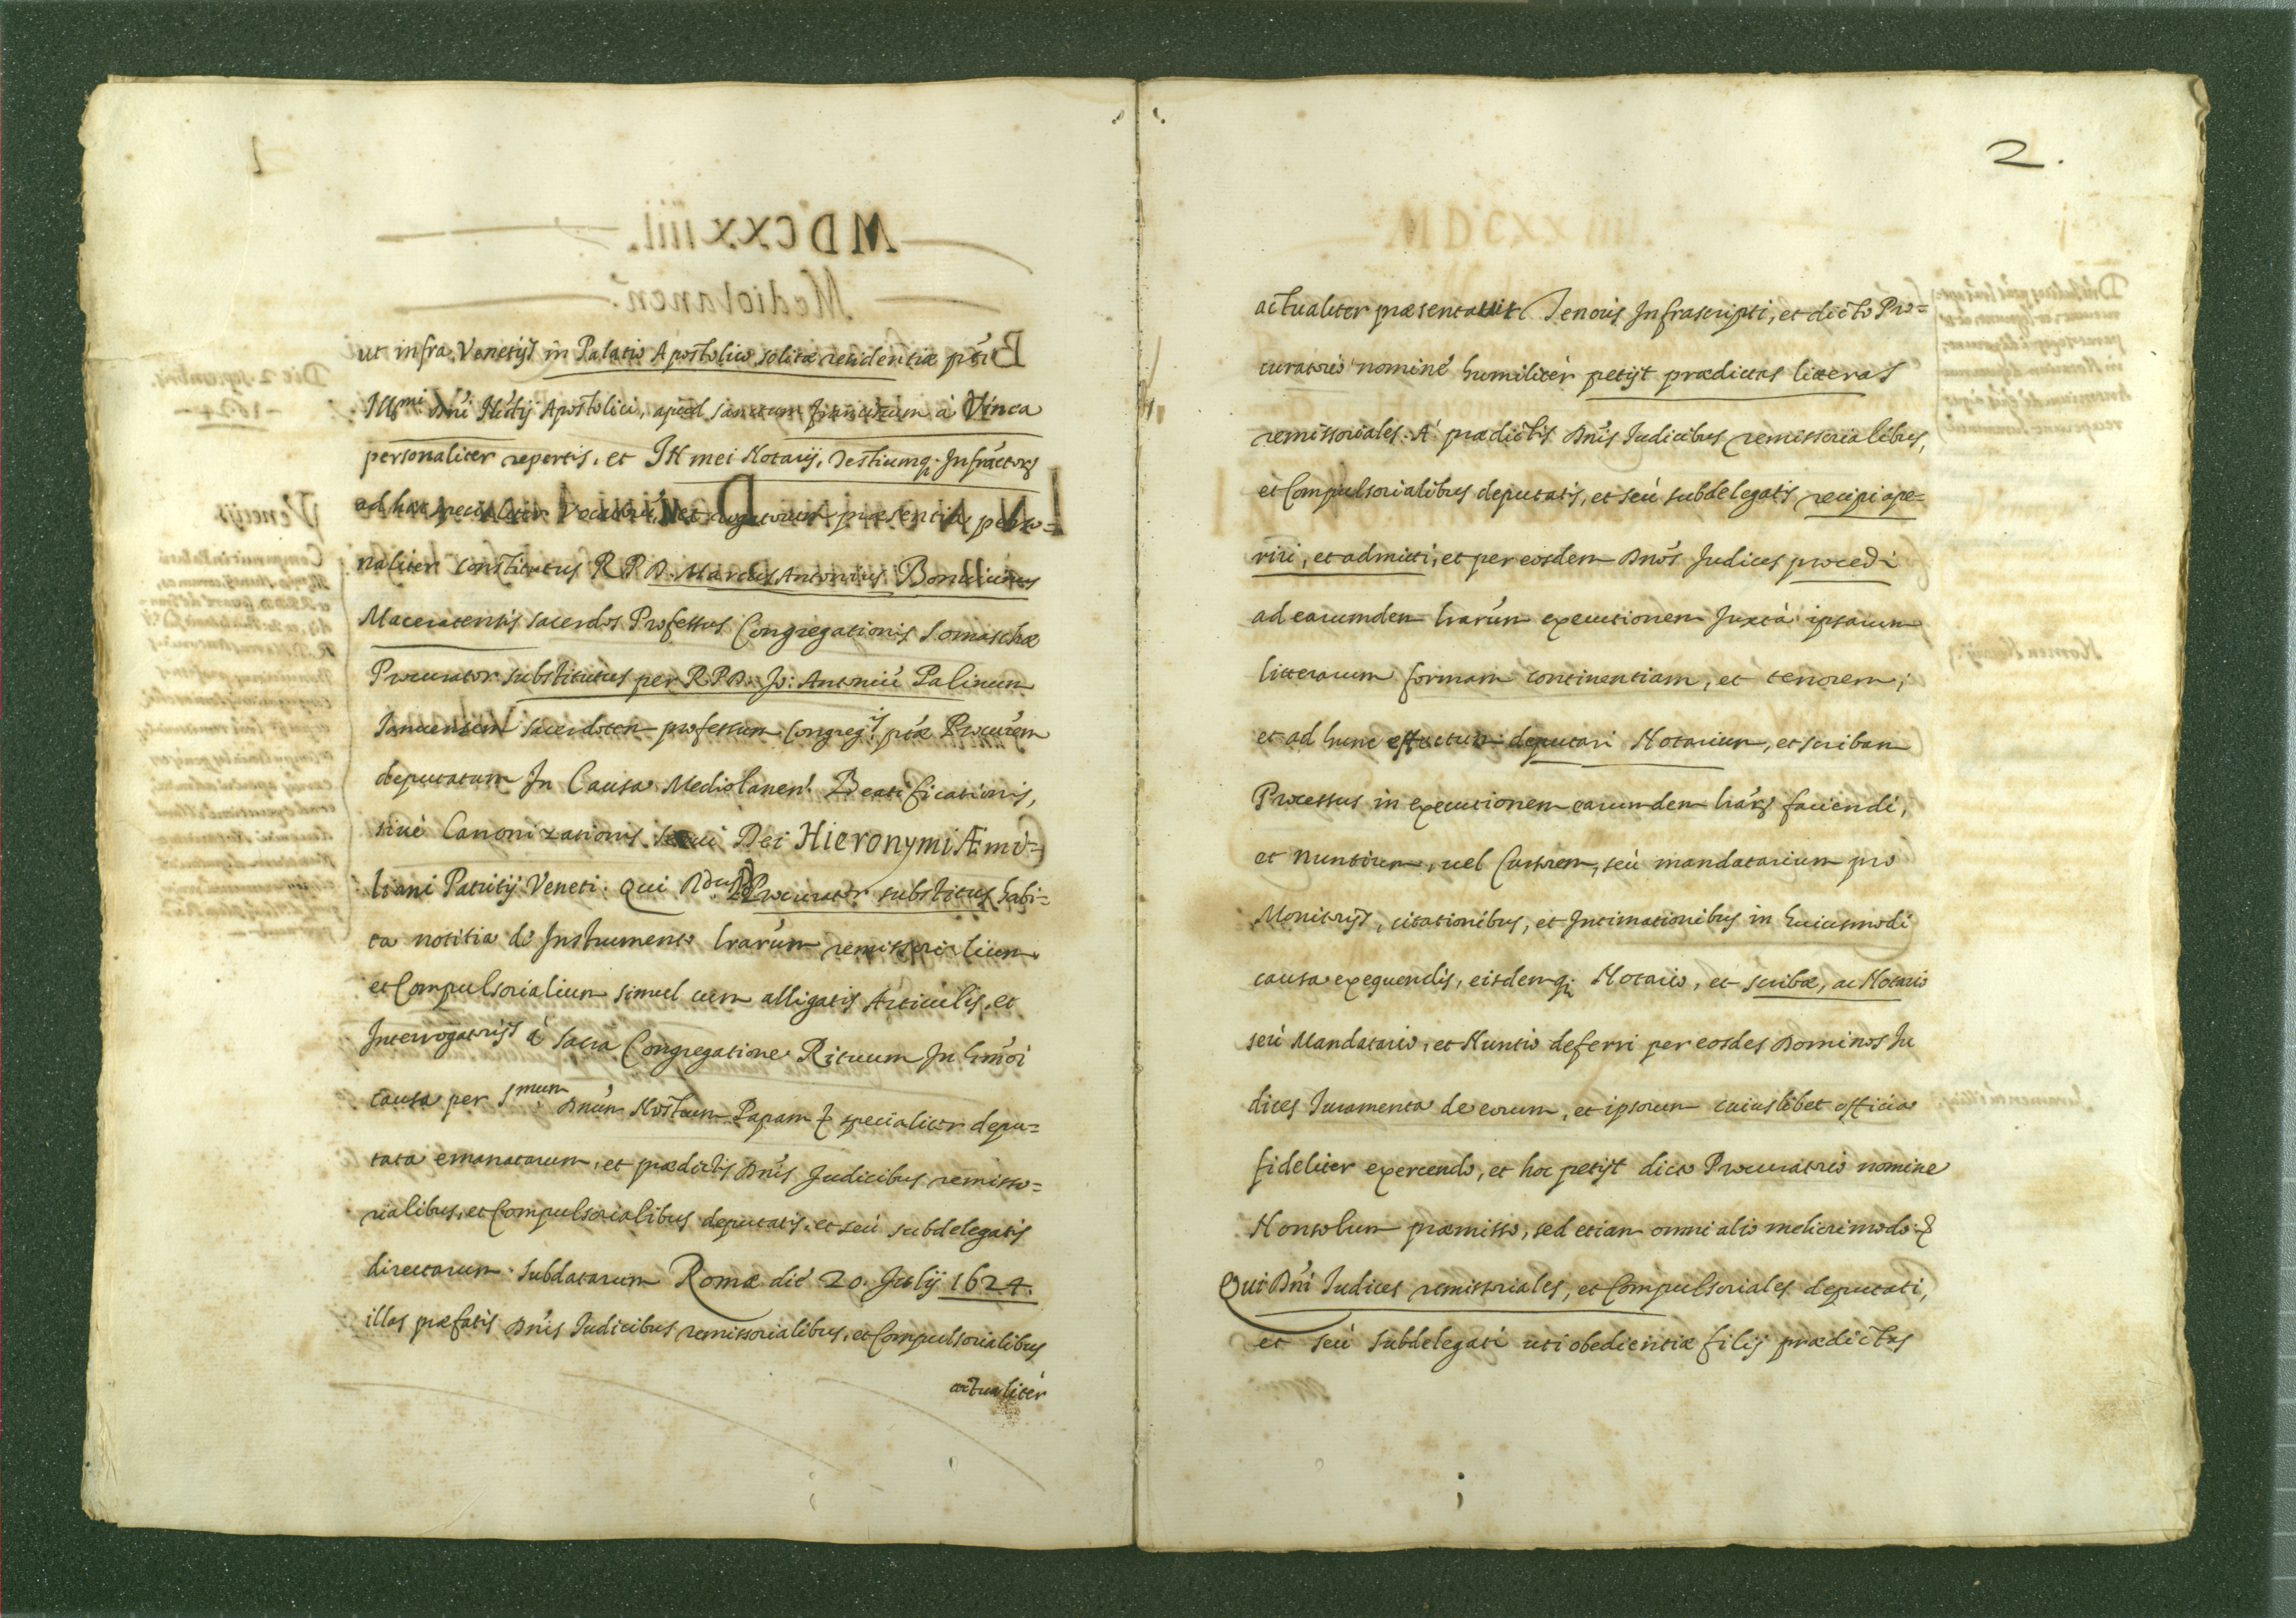 ut infra, Venetijs in Palatio Apostolico solitæ residentiæ pñti
Illmi Dñi Nũtij Apostolici, apud sanctum Franciscum à Vinea
personaliter repertis, et IN mei Notarij, Testiumq; Infractorz
ad hæc specialiter vocatorũ, et rogatorum præsentia perso=
naliter constitutus R P D. Marcus Antonius Bonicinus
Maceratensis sacerdos Professus Congregationis Somaschæ
Procurator substitutus per R P D. Jo: Antoniũ Palinum
sacerdotem professum Congreg.is ptæ Procurẽm
deputatum In Causa Mediolanen! Beatificationis,
siuè Canonizationis serui Dei Hieronymi Æmi=
liani Patritij Veneti. Qui Rdus D Procurator substitus habi=
ta notitia de Instrumento lrarum remissorialium
et Compulsorialium simul cum alligatis Articulis, et
Interrogatorijs à Sacra Congregatione Rituum In hmõi
causa per Smum Dnũn Nostrum Papam & specialiter depu=
tata emanatarum, et prædictis Dñis Judicibus remisso=
rialibus, et Compulsorialibus deputatis, et seù subdelegatis
directarum. Subdatarum Romæ diè 20. Julij 1624.
illas præfatis Dñis Iudicibus remissorialibus, et Compulsorialibus
actualiter
2.
actualiter præsentauit Tenoris Infrascripti, et dicto Pro=
curatorio nominè humiliter petijt prædictas litteras
remissoriales. A' prædictis Dñis Iudicibus remissorialibus,
et Compulsorialibus deputatis, et seù subdelegatis recipi ape=
riri, et admitti, et per eosdem Dnõs Judices procedi
ad earumdem lrarũn executionem Juxtà ipsarum
litterarum formam continentiam, et tenorem;
et ad hunc effectum deputari Notarium, et scribam
Processus in executionem earumdem lrãrz faciendi,
et Nuntium, uel Cursorem, seù mandatarium pro
Monitorijs, citationibus, et Intimationibus in huiusmodi
causa exequendis, eisdemq; Notario, et scribæ, ac Notario
seù Mandatario, et Nuntio deferri per eosdes Dominos Ju
dices Iuramenta de eorum, et ipsorum cuiuslibet officio
fideliter exercendo, et hoc petijt dicto Procuratorio nomine
Nonsolum præmisso, sed etiam omni alio meliori modo &
Qui Dñi Iudices remissoriales, et Compulsoriales deputati,
et seù subdelegati uti obedientiæ filij prædictas